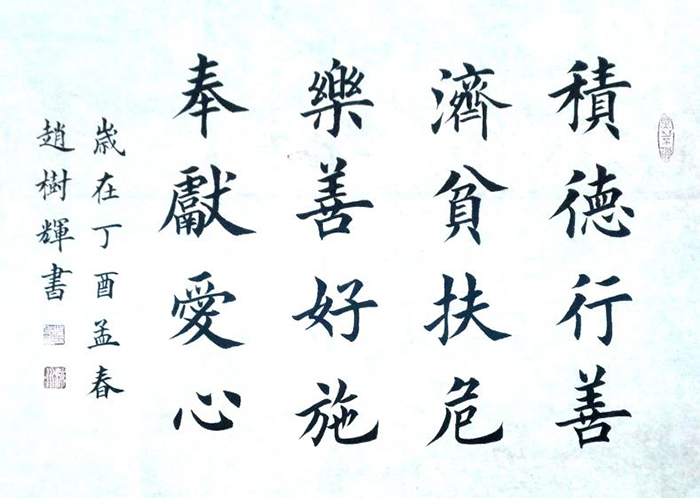 積德行善
濟貧扶危
樂善好施
奉獻愛心
歲在丁酉孟春
趙樹輝書